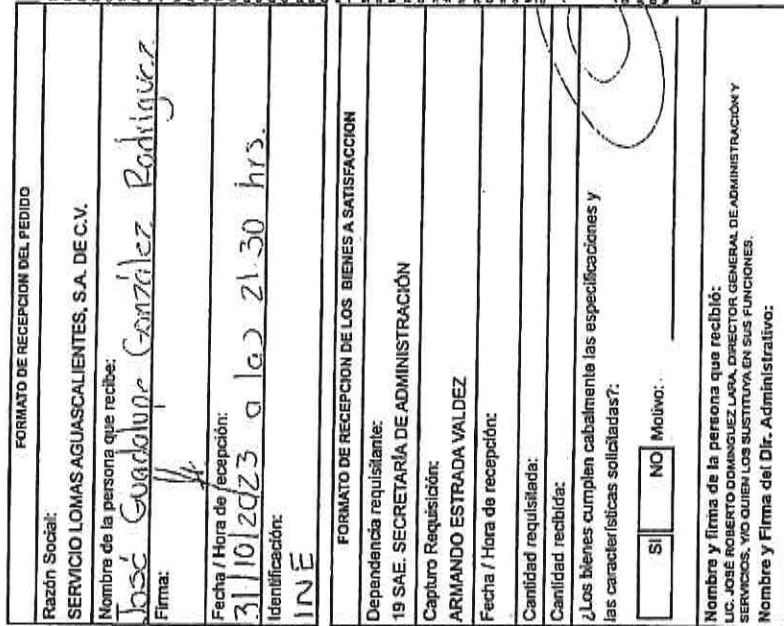 FORMATO DE RECEPCION DEL PEDIDO
Razón Social:
SERVICIO LOMAS AGUASCALIENTES, S.A. DE C.V.
Nombre de la persona que recibe:
José Guadalupe González Rodriguez
Firma:
Fecha / Hora de recepción:
31/10/2023 a las 21:30 hrs.
Identificación:
INE
FORMATO DE RECEPCION DE LOS BIENES A SATISFACCION
Dependencia requisitante:
19 SAE. SECRETARÍA DE ADMINISTRACIÓN
Capturo Requisición:
ARMANDO ESTRADA VALDEZ
Fecha / Hora de recepción:
Cantidad requisitada:
Cantidad recibida:
¿Los bienes cumplen cabalmente las especificaciones y
las características solicitadas?:
SI NO Motivo:
Nombre y firma de la persona que recibió:
LIC. JOSÉ ROBERTO DOMINGUEZ LARA, DIRECTOR GENERAL DE ADMINISTRACIÓN Y
SERVICIOS, Y/O QUIEN LOS SUSTITUYA EN SUS FUNCIONES.
Nombre y Firma del Dir. Administrativo: